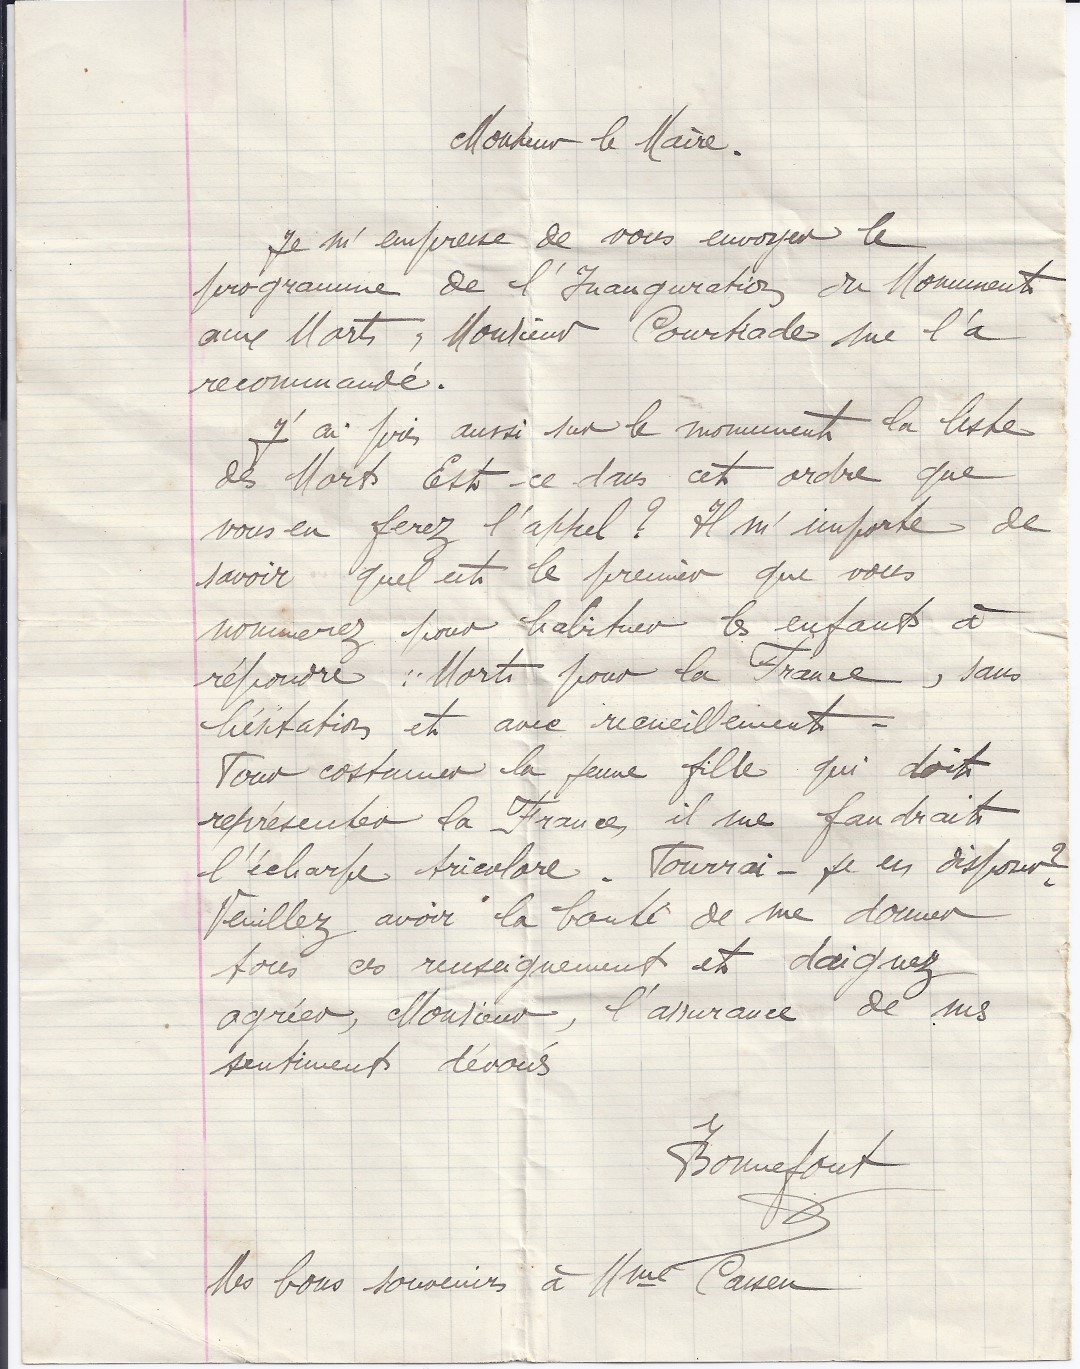 Monsieur le Maire.
Je m'empresse de vous envoyer le
programme de l'Inauguration du Monument
aux Morts, Monsieur Courtiade me l'a
recommandé.
J'ai pris aussi sur le monument la liste
des Morts Est-ce dans cet ordre que
vous en ferez l'appel ? Il m'importe de
savoir quel est le premier que vous
nommerez pour habituer les enfants à
répondre : "Morts pour la France, sans
hésitation et avec recueillement -
Pour costumer la jeune fille qui doit
représenter la France, il me faudrait
l'écharpe tricolore. Pourrai-je en disposer ?
Veuillez avoir la bonté de me donner
tous ces renseignements et daignez
agréer, Monsieur, l'assurance de mes
sentiments dévoués
Bonnefont
Mes bons souvenirs à Mme